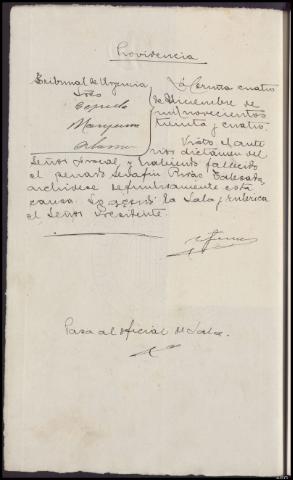 Providencia
Tribunal de Urgencia
Sres
Marquina
La Coruña cuatro
de Diciembre de
mil novecientos
treinta y cuatro
Visto el ante
rior dictamen del
Señor Fiscal, y habiendo fallecido
el penado Serafín Rivas
archívese definitivamente esta
causa. Lo acordó la Sala y rubrica
el Señor Presidente.
Pasa al oficial de Sala.